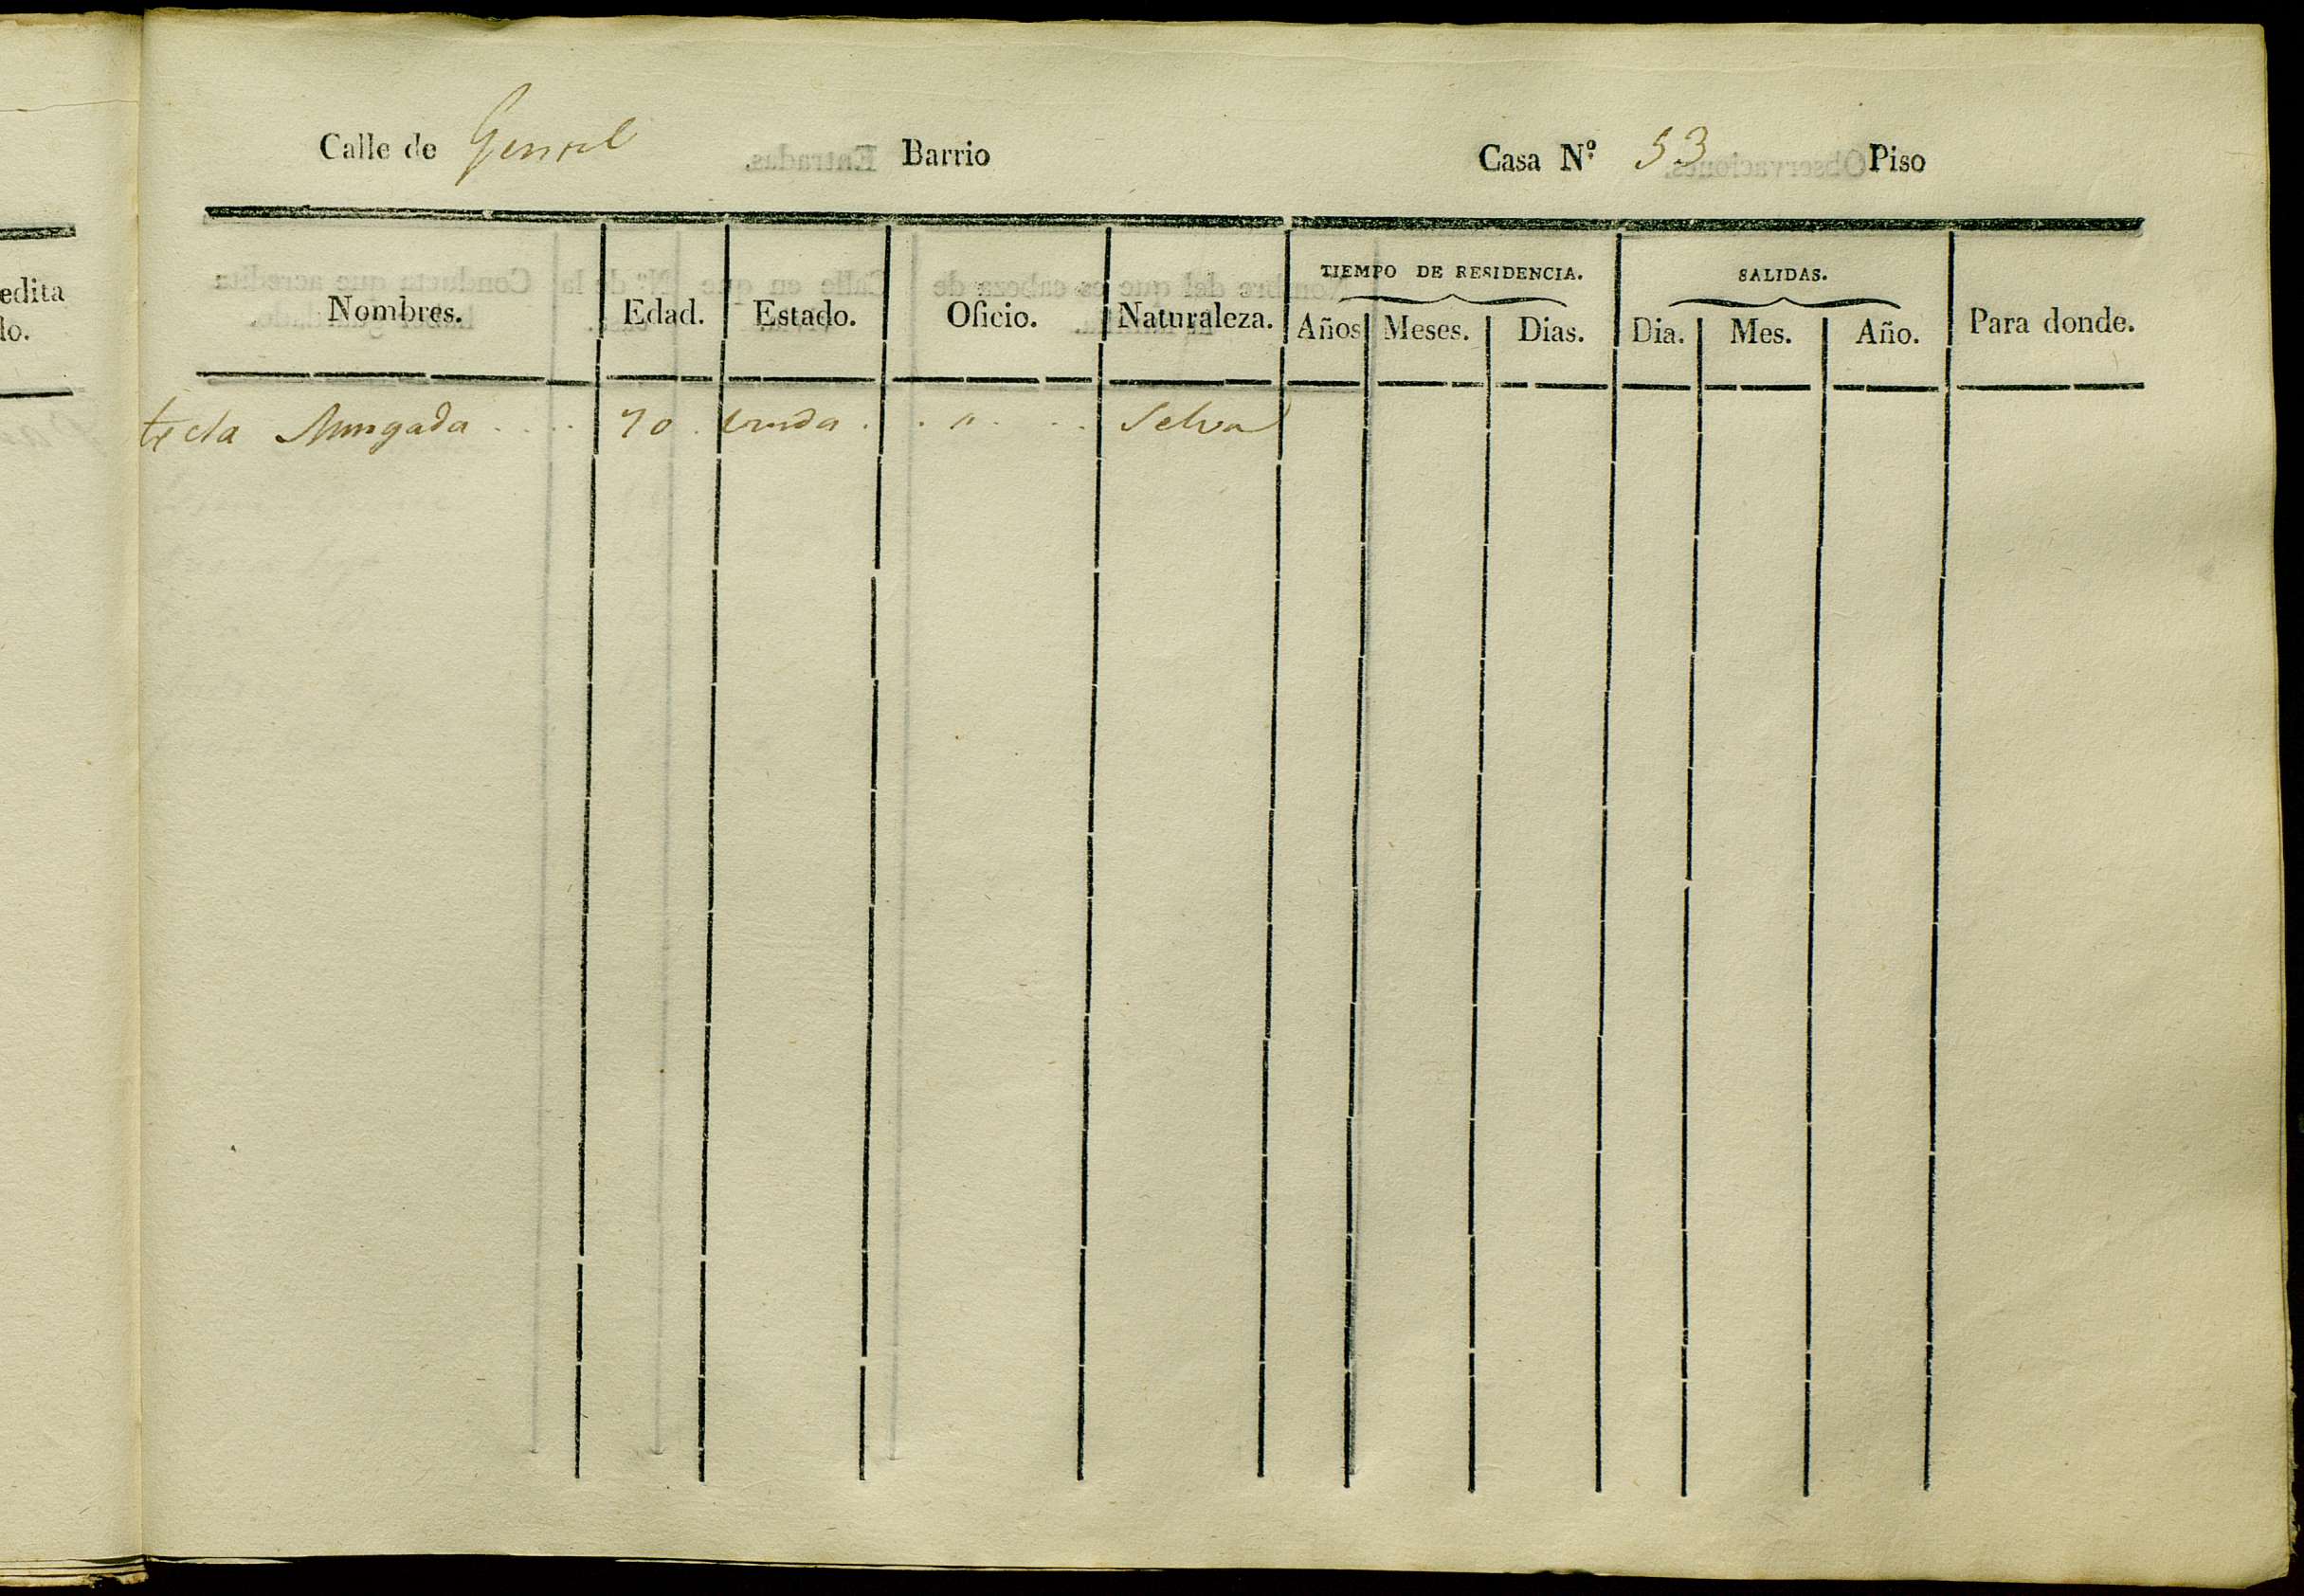 edita
lo.
Calle de Barrio Casa Nº 53 Piso
Nombres. Edad. Estado. Oficio. Naturaleza. TIEMPO DE RESIDENCIA. Años Meses. Dias. SALIDAS. Dia. Mes. Año. Para donde.
tecla Mungada . . . . 70 . viuda . . " . . . Selva